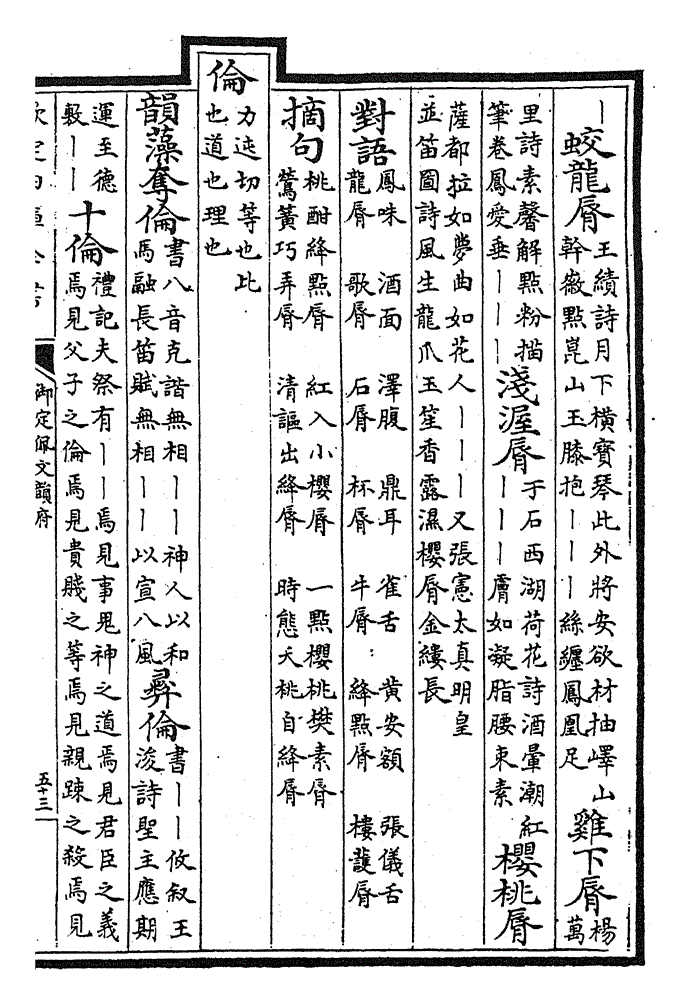 ｜蛟龍脣王績詩月下橫寶琴此外將安欲材抽嶧山
幹徽點崑山玉膝抱｜｜｜絲纏鳳凰足雞下脣楊萬
里詩素馨解點粉描
筆卷鳳愛垂｜｜｜淺渥脣于石西湖荷花詩酒暈潮紅
｜｜｜膚如凝脂腰束素櫻桃脣
薩都拉如夢曲如花人｜｜｜又張憲太真明皇
並笛圖詩風生龍爪玉笙香露濕櫻脣金縷長
對語鳳味 酒面 澤腹 鼎耳 雀舌 黄安額 張儀舌
龍脣 歌脣 石脣 杯脣 牛脣 絳點脣 樓護脣
摘句桃酣絳點脣 紅入小櫻脣 一點櫻桃樊素脣
鶯簧巧弄脣 清謳出絳脣 時態夭桃自絳脣
倫力迍切等也比
也道也理也
韻藻奪倫書八音克諧無相｜｜神人以和
馬融長笛賦無相｜｜以宣八風彝倫書｜｜攸叙王
浚詩聖主應期
運至德
斁｜｜十倫禮記夫祭有｜｜焉見事鬼神之道焉見君臣之義
焉見父子之倫焉見貴賤之等焉見親踈之殺焉見
御定佩文韻府
五十三